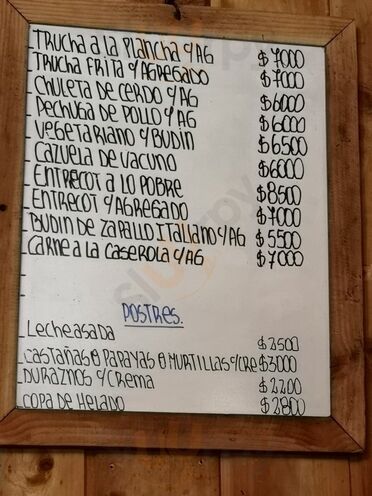 - TRUCHA A LA PLANCHA c/AG $ 7000
- TRUCHA FRITA c/AGREGADO $ 7000
- CHULETA DE CERDO c/AG $ 6000
- PECHUGA DE POLLO c/AG $ 6000
- VEGETARIANO c/BUDIN $ 6500
- CAZUELA DE VACUNO $ 6000
- ENTRECOT A LO POBRE $ 8500
- ENTRECOT c/AGREGADO $ 7000
- BUDIN DE ZAPALLO ITALIANO c/AG $ 5500
- CARNE A LA CASEROLA c/AG $ 7000
-
-
POSTRES.
- Leche asada $ 2500
- CASTAÑAS O PAPAYAS O MURTILLAS c/CRE $3000
- DURAZNOS c/CREMA $ 2200
- COPA DE HELADO $ 2800